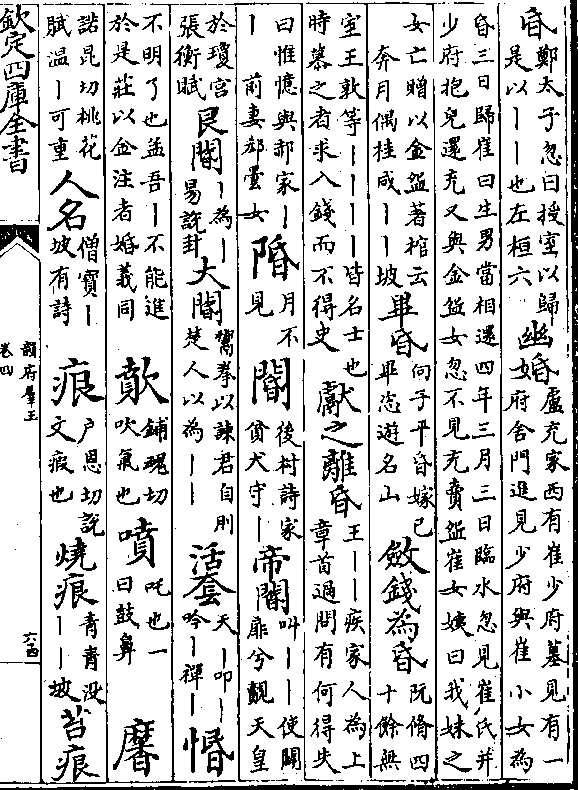 昏 鄭太子忽曰授室以歸是以丨丨也左桓六 幽婚 盧充家西有崔少府墓見有一府舍門進見少府與崔小女為
昏三日歸崔曰生男當相還四年三月三日臨水忽見崔氏并少府抱兒還充又與金鋺女忽不見充賣鋺崔女姨曰我妹之
女亡贈以金鋺著棺云奔月偶桂成丨丨坡 畢昏 向子平昏嫁已畢恣遊名山 斂錢為昏 阮脩四十餘無
室王敦等丨丨丨丨皆名士也時慕之者求入錢而不得史 獻之離昏 王丨丨疾家人為上章首過問有何得失
曰惟憶與郗家丨丨前妻郗曇女 月不見 閽 後村詩家貧犬守丨 帝閽 叫丨丨使闢扉兮覿天皇
於瓊宮張衡賦 艮閽 丨為丨易説卦 大閽 鬻拳以諫君自刖楚人以為丨丨 活套 天丨叩丨吟丨禪丨 惛
不明了也孟吾丨不能進於是莊以金注者婚義同 歕 鋪魂切吹氣也 噴 吒也一曰鼓鼻 黁
諾昆切桃花賦温丨可重 人名 僧寳丨坡有詩 痕 户恩切説文瘢也 燒痕 青青没丨丨坡 苔痕
欽定四庫全書
韻府羣玉
卷四
六四